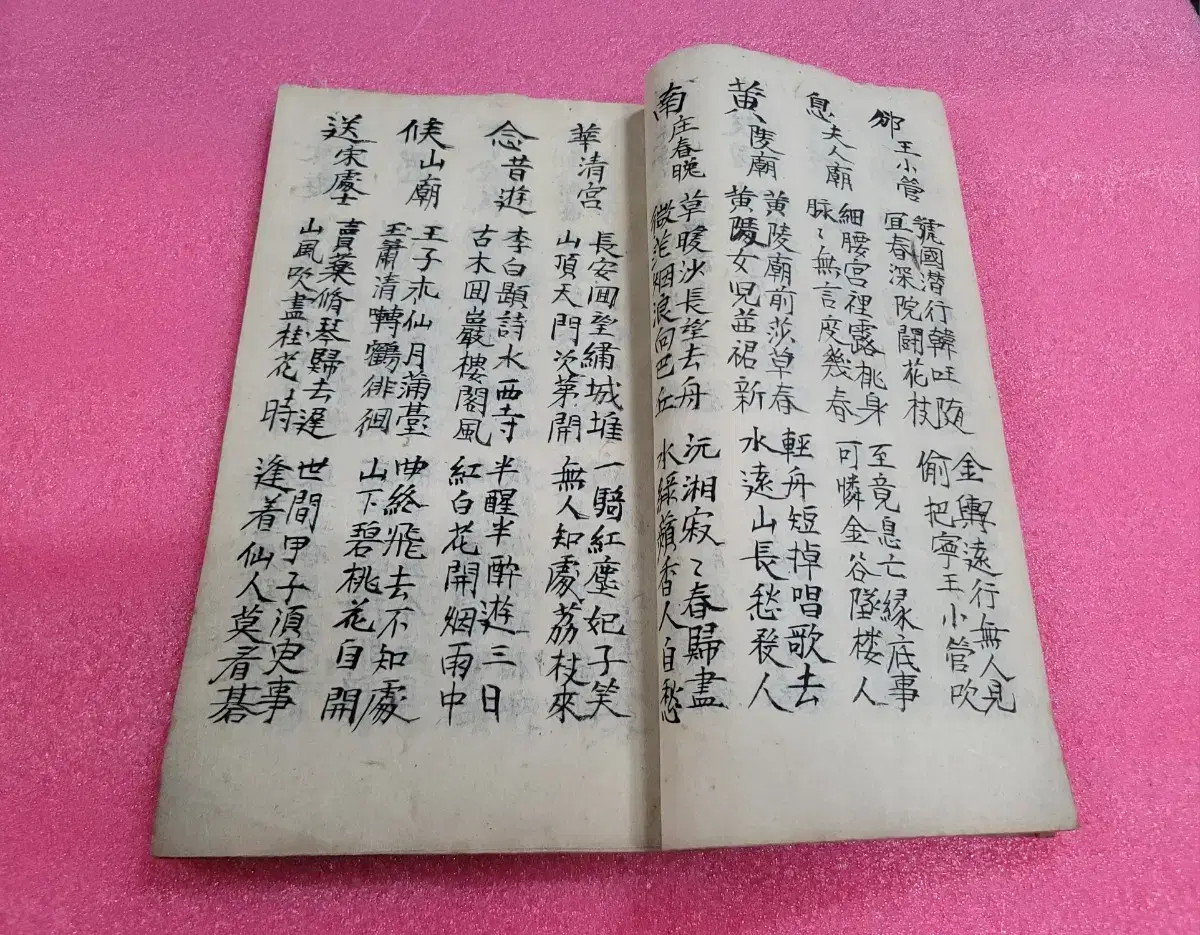 邠王小管
虢國潛行韓旺随
宜春深院闘花枝
金輿遠行無人見
偷把寧王小管吹
息夫人廟
細腰宮裡露桃身
脉〻無言度幾春
至竟息亡緣底事
可憐金谷墜楼人
黃陵廟
黃陵廟前莎草春
黃陵女児茜裙新
輕舟短掉唱歌去
水遠山長愁殺人
南庄春晚
草暖沙長望去舟
微茫烟浪向巴丘
沅湘寂〻春歸盡
水綠蘋香人自愁
華清宮
長安囬望繡城堆
山頂天門次第開
一騎紅塵妃子笑
無人知處荔枝來
念昔遊
李白題詩水西寺
古木囬巖樓閣風
半醒半酔遊三日
紅白花開烟雨中
候山廟
王子求仙月滿臺
玉簫清囀鶴徘徊
曲終飛去不知處
山下碧桃花自開
送宋處士
賣藥脩琴歸去遲
山風吹盡桂花時
世間甲子須臾事
逢着仙人莫看碁